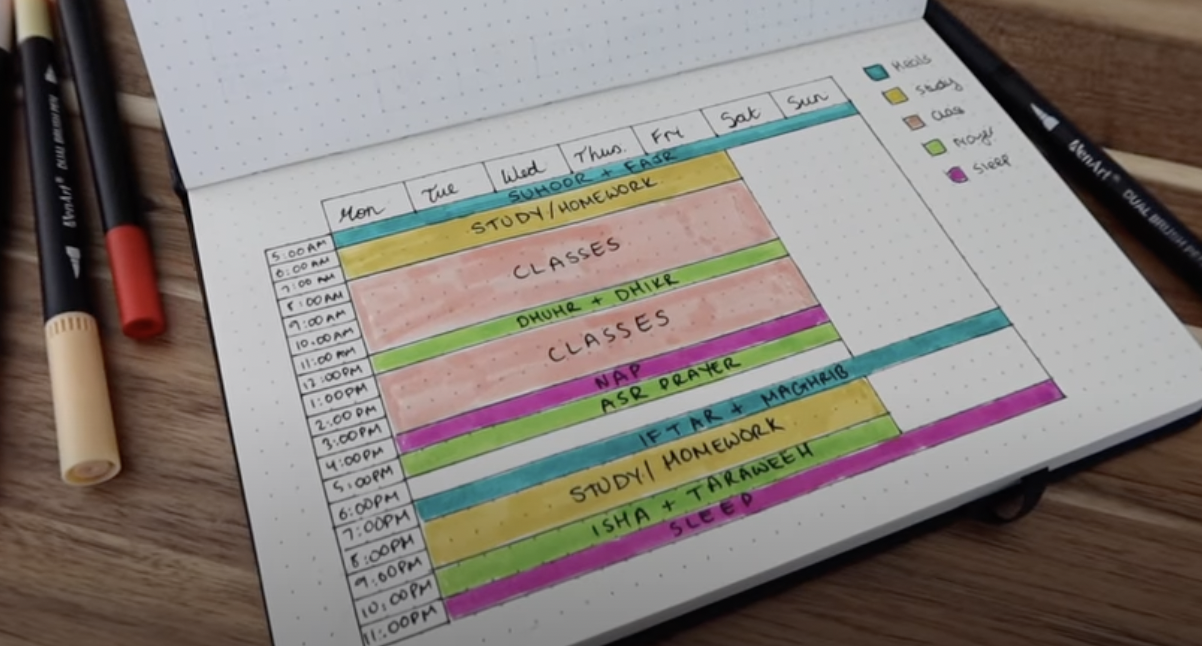 Mon Tue Wed Thus. Fri Sat Sun
5:00AM
6:00AM
7:00AM
8:00AM
9:00AM
10:00AM
11:00AM
12:00PM
1:00PM
2:00PM
3:00PM
4:00PM
5:00PM
6:00PM
7:00PM
8:00PM
9:00PM
10:00PM
11:00PM
SUHOOR + FAJR
STUDY/HOMEWORK
CLASSES
DHUHR + DHIKR
CLASSES
NAP
ASR PRAYER
IFTAR + MAGHRIB
STUDY/HOMEWORK
ISHA + TARAWEEH
SLEEP
Meals
Study
Class
Prayer
Sleep
DUAL BRUSH PEN
DUAL BRUSH